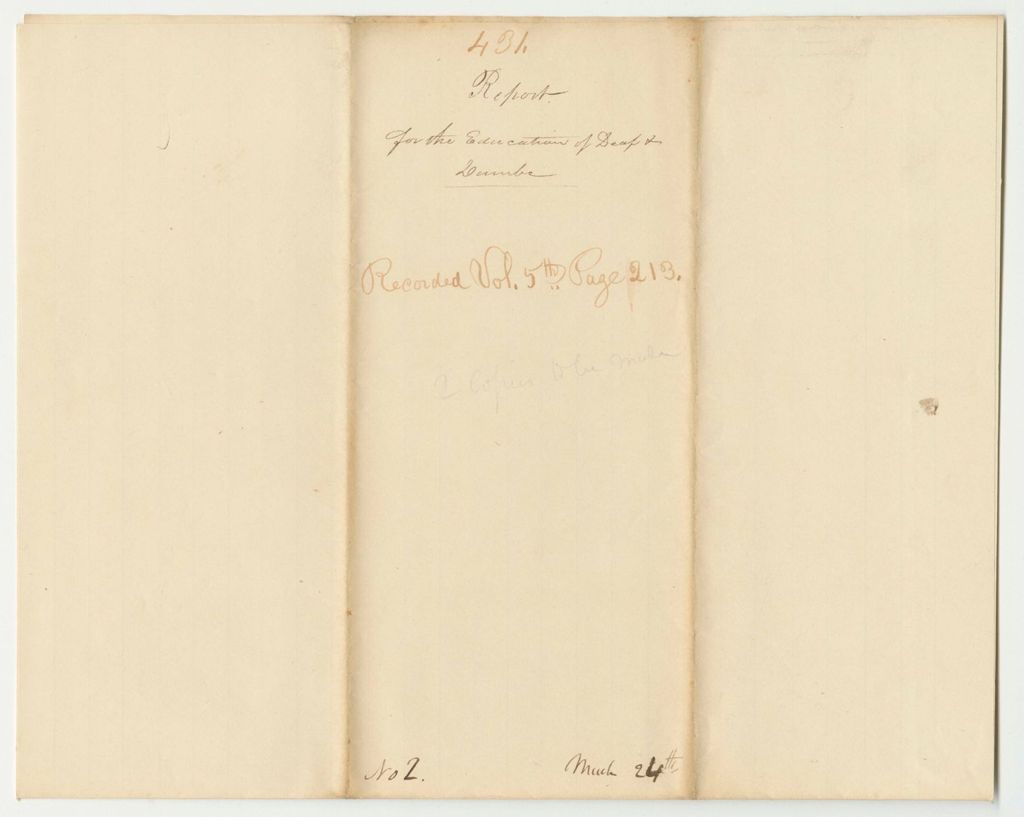 431.
Report
for the Education of Deaf &
Dumbe
Recorded Vol. 5th Page 213.
2 Copies to be made
No 2. March 24th